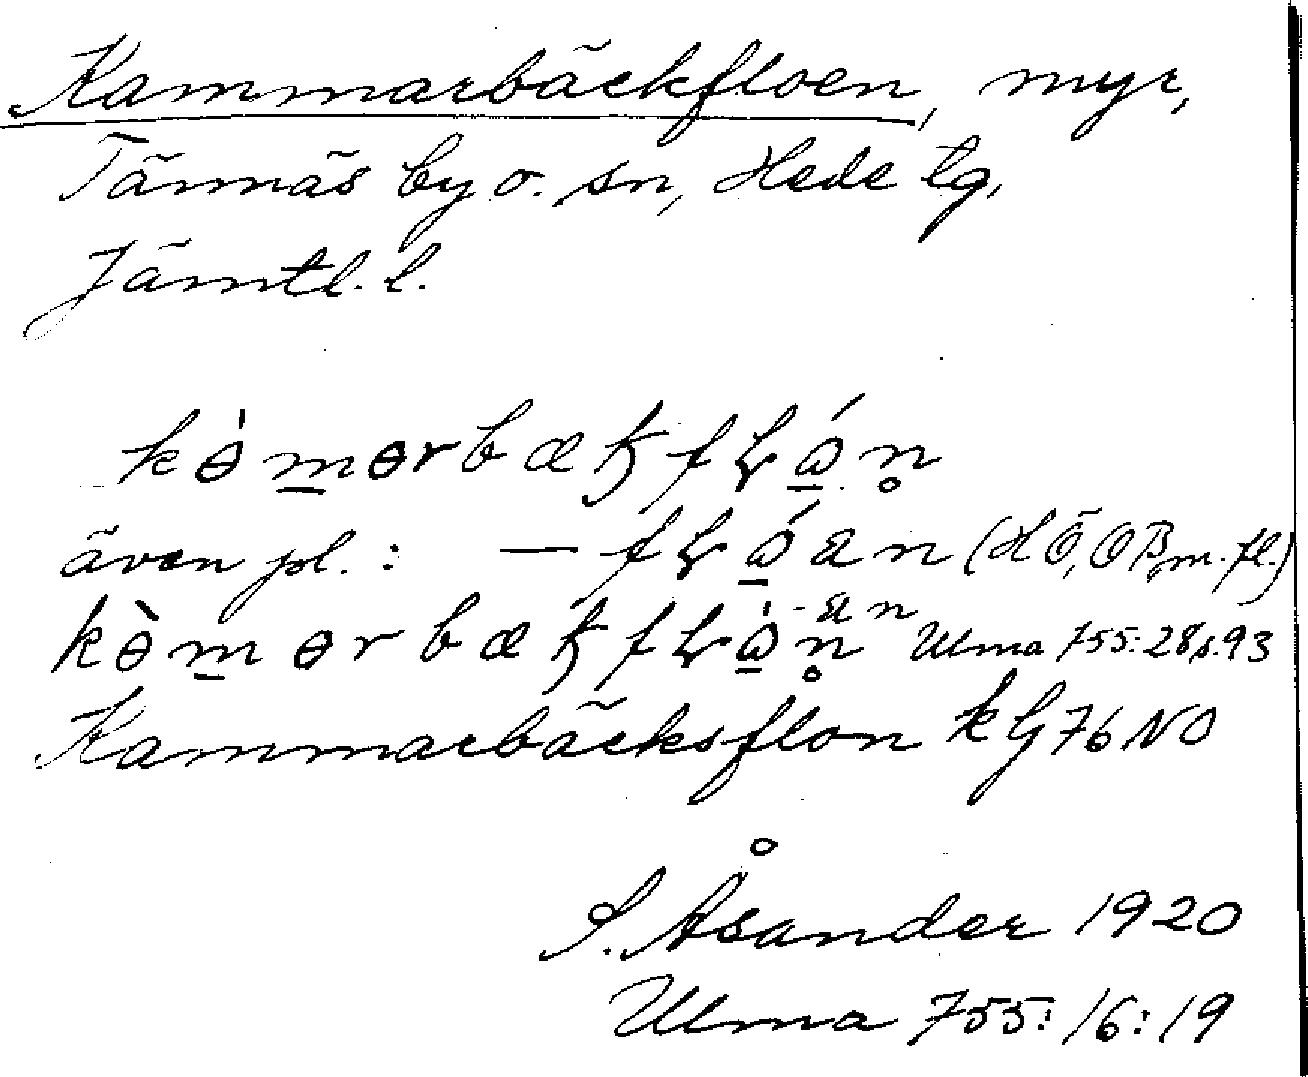 Kammarbäckfloen, myr,
Tännäs by o. sn, Hede tg,
Jämtl. l.
även pl.: — (HÖ, OB m. fl.)
Ulma 755:28 s. 93
Kammarbäcksflon kG 76 NO
S. Åsander 1920
Ulma 755:16:19